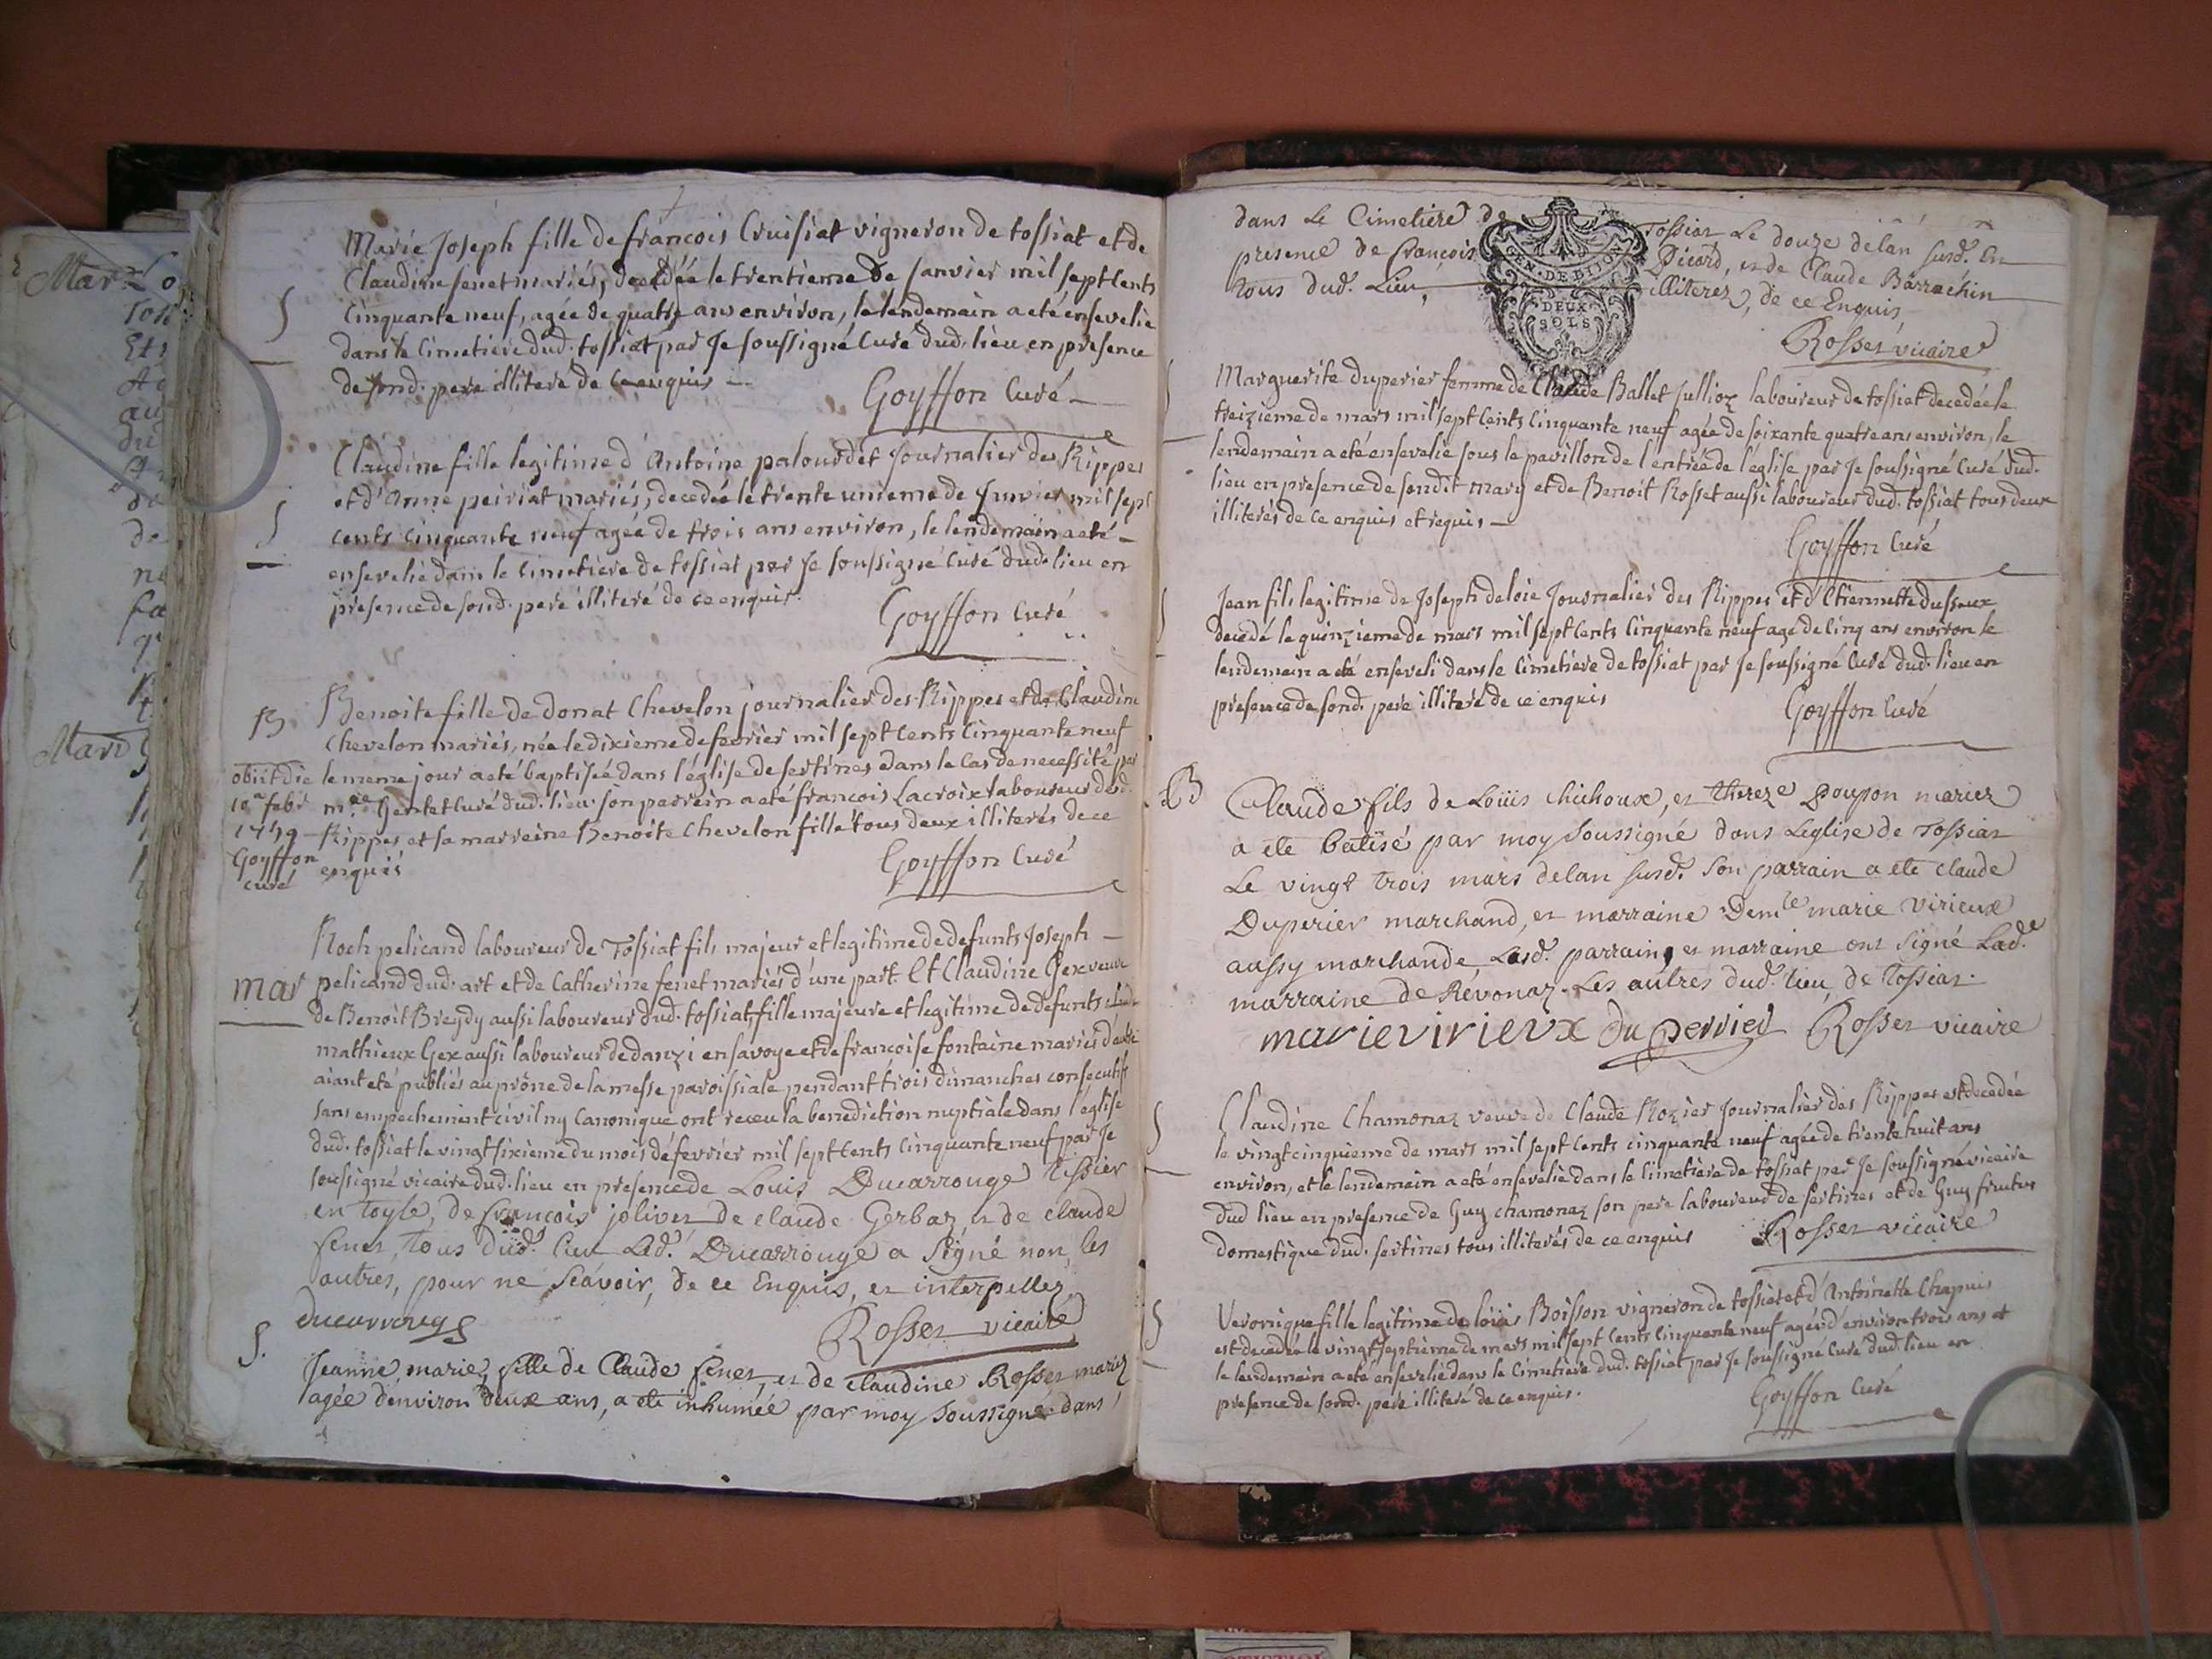 Marie Joseph fille de françois Cruisiat vigneron de tossiat et de
Claudine fenet mariés, decedée le trentieme de janvier mil sept cents
S cinquante neuf, agée de quatre ans environ, le lendemain a eté ensevelie
dans le cimetiere dud. tossiat par je soussigné curé dud. lieu en presence
de sond. pere illiteré de ce enquis
Goyffon curé
Claudine fille legitime d'Antoine palourdet journalier des Rippes
et d'Anne peiriat mariés, decedée le trente unieme de janvier mil sept
S cents cinquante neuf agée de trois ans environ, le lendemain a eté
ensevelie dans le cimetiere de tossiat par je soussigné curé dud. lieu en
presence de sond. pere illiteré de ce enquis.
Goyffon curé
B Benoite fille de donat Chevelon journalier des Rippes et de Claudine
Chevelon mariés, née le dixieme de fevrier mil sept cents cinquante neuf
le meme jour a eté baptisée dans l'église de sertines dans le cas de necessité par
mre Gentet curé dud. lieu. son parrein a eté francois Lacroix laboureur desd.
Rippes et sa marreine Benoite Chevelon fille tous deux illiterés de ce
enquis
Goyffon curé
obiit die
10a febr
1759
Goyffon
curé
Roch pelicand laboureur de Tossiat fils majeur et legitime de defunts Joseph
mar pelicand dud. art et de Catherine fenet mariés d'une part. Et Claudine Gex veuve
de Benoit Breydy aussi laboureur dud. tossiat, fille majeure et legitime de defunts
mathieux Gex aussi laboureur de danzi en savoye et de francoise fontaine mariés d'autre
aiant eté publiés au prône de la messe paroissiale pendant trois dimanches consecutifs
sans empechement civil ny canonique ont receu la benediction nuptiale dans l'église
dud. tossiat le vingt sixieme du mois de fevrier mil sept cents cinquante neuf par je
soussigné vicaire dud. lieu en presence de Louis Ducarrouge tessier
en toyle, de françois jolivet de claude Gerbaz, et de claude
fenet, tous dud. lieu Led. Ducarrouge a signé non les
autres, pour ne sçavoir, de ce Enquis, et interpellez
ducarrouge
Rosset vicaire
S. Jeanne marie, fille de Claude fenet, et de claudine Rosset mariez
agée d'environ deux ans, a eté inhumée par moy soussigné dans
dans le Cimetiere de Tossiat Le douze delan susd. En
presence de François Picard, et de Claude Barrachin
tous dud. Lieu, illiterez, de ce Enquis
GEN. DE DIJON
DEUX
SOLS
Rosset vicaire
Marguerite duperier femme de Claude Ballet jullioz laboureur de tossiat decedée le
treizieme de mars mil sept cents cinquante neuf agée de soixante quatre ans environ, le
lendemain a eté ensevelie sous le pavillon de l'entrée de l'église par je soussigné curé dud.
lieu en presence de sondit mary et de Benoit Rosset aussi laboureur dud. tossiat tous deux
illiterés de ce enquis et requis
Goyffon curé
Jean fils legitime de Joseph deloie journalier des Rippes et d'Etiennette dusseux
decedé le quinzieme de mars mil sept cents cinquante neuf agé de cinq ans environ le
lendemain a eté enseveli dans le cimetiere de tossiat par je soussigné curé dud. lieu en
presence de sond. pere illiteré de ce enquis
Goyffon curé
B Claude fils de Loüis chichoux, et thereze Poupon mariez
a ete batisé par moy soussigné dans Leglise de Tossiat
Le vingt trois mars delan susd. son parrain a ete claude
Duperier marchand, et marraine Demlle marie virieux
aussy marchande, Lesd. parrain, et marraine ont signé Lad.
marraine de Revonaz. Les autres dud. lieu, de Tossiat.
marie virieux du perrier Rosset vicaire
S Claudine Chamonaz veuve de Claude Rozier journalier des Rippes est decedée
le vingt cinquieme de mars mil sept cents cinquante neuf agée de trente huit ans
environ, et le lendemain a eté ensevelie dans le cimetiere de tossiat par je soussigné vicaire
dud lieu en presence de Guy chamonaz son pere laboureur de sertines et de Guy
domestique dud. sertines tous illiterés de ce enquis
Rosset vicaire
S Veronique fille legitime de loüis Boisson vigneron de tossiat et d'Antoinette Chapuis
est decedée le vingt septieme de mars mil sept cents cinquante neuf agée d'environ trois ans et
le lendemain a eté ensevelie dans le cimetiere dud. tossiat par je soussigné curé dud. lieu en
presence de sond. pere illiteré de ce enquis.
Goyffon curé